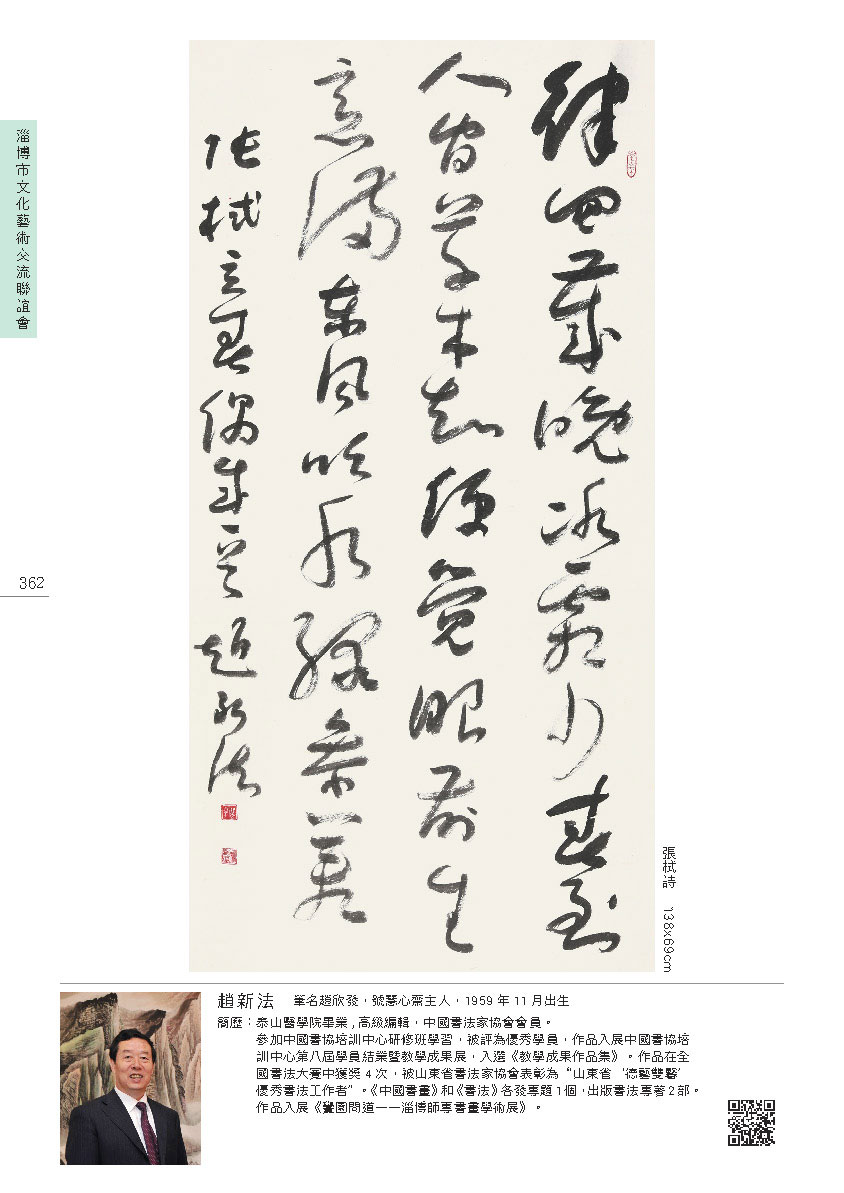 淄博市文化藝術交流聯誼會
362
律回歲晚冰霜少春到
人間草木知便覺眼前生
意滿東風吹水綠參差
張栻立春偶成一首 趙新法
張栻詩 138x69cm
趙新法 筆名趙欣發，號慧心齋主人，1959 年 11 月出生
簡歷：泰山醫學院畢業，高級編輯，中國書法家協會會員。
參加中國書協培訓中心研修班學習，被評為優秀學員，作品入展中國書協培
訓中心第八屆學員結業暨教學成果展，入選《教學成果作品集》。作品在全
國書法大賽中獲獎 4 次，被山東省書法家協會表彰為“山東省‘德藝雙馨’
優秀書法工作者”。《中國書畫》和《書法》各發專題 1 個，出版書法專著 2 部。
作品入展《黌園問道——淄博師專書畫學術展》。